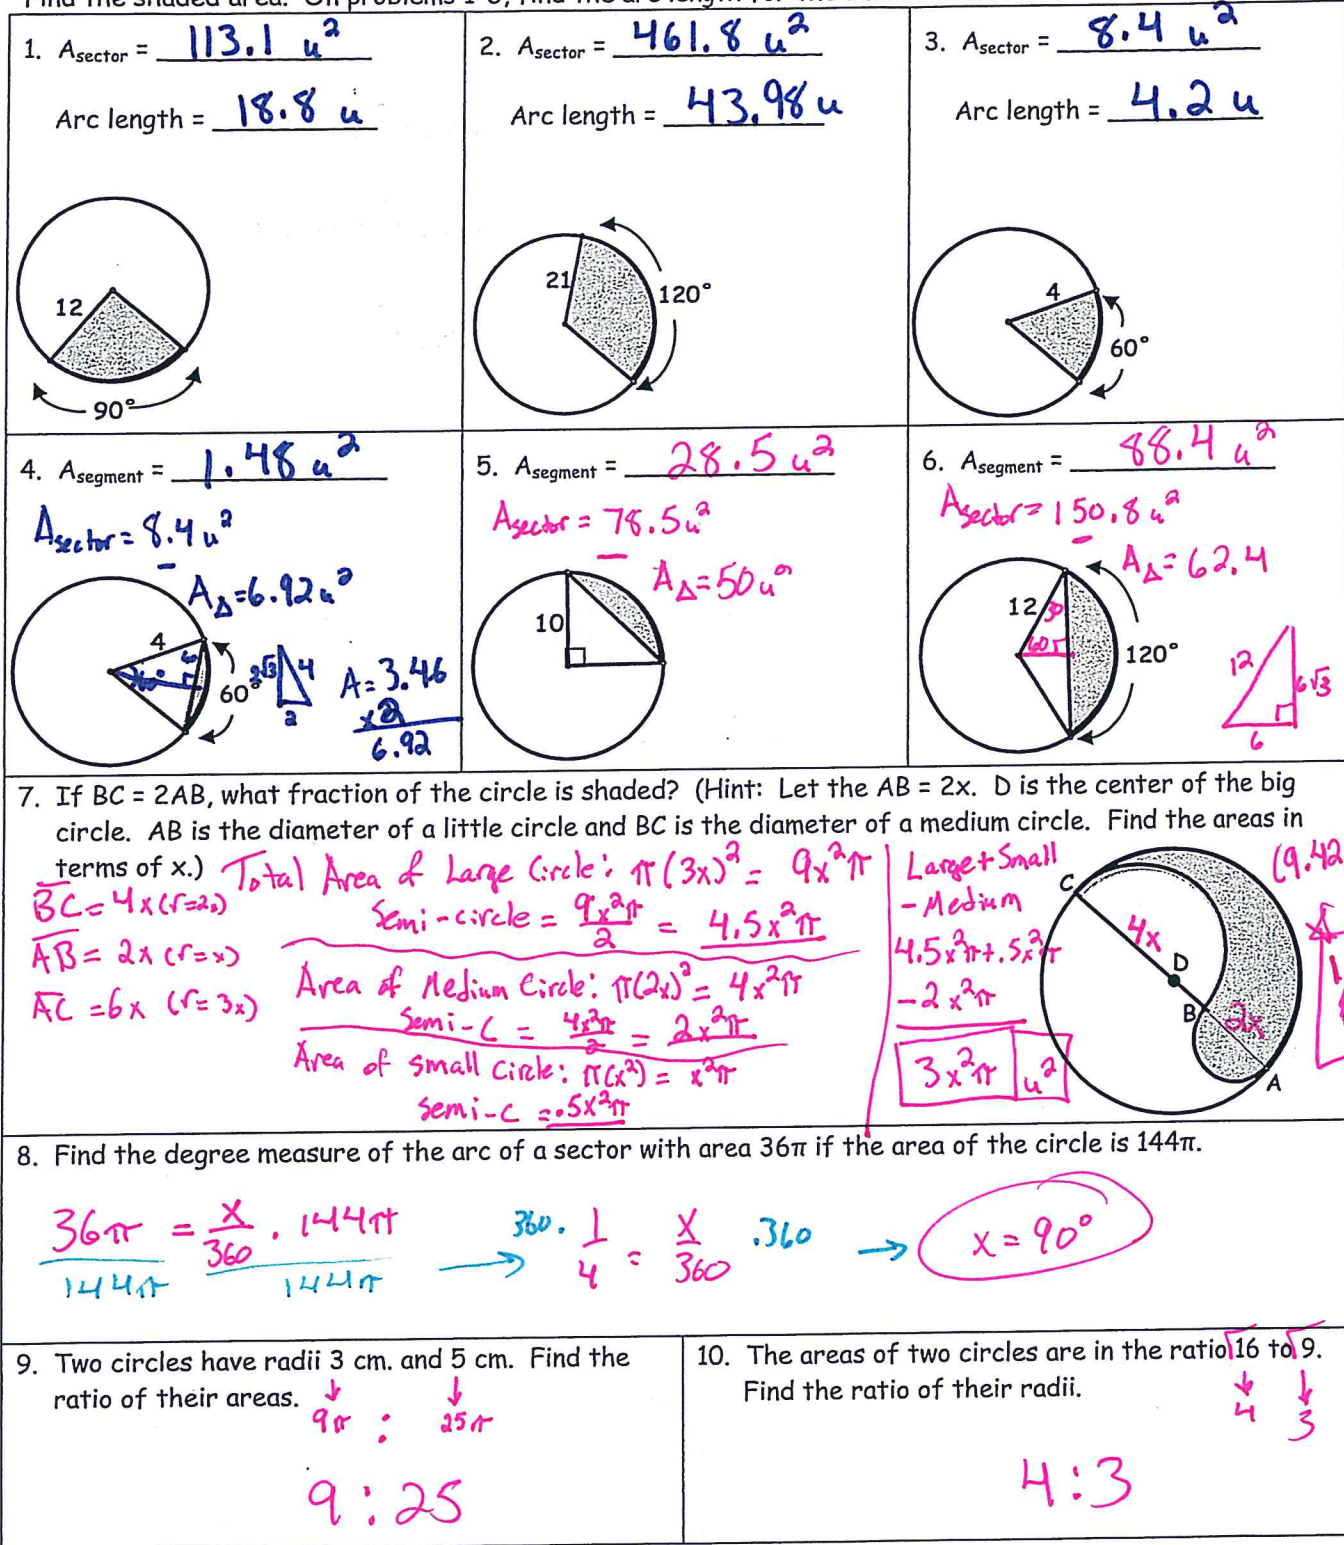 1. Asector = 113.1 u²
Arc length = 18.8 u
12
90°
2. Asector = 461.8 u²
Arc length = 43.98 u
21
120°
3. Asector = 8.4 u²
Arc length = 4.2 u
4
60°
4. Asegment = 1.48 u²
Asector = 8.4 u²
A△=6.92 u²
4
60°
2√3
4
2
A=3.46
x2
6.92
5. Asegment = 28.5 u²
Asector = 78.5 u²
A△=50 u²
10
6. Asegment = 88.4 u²
Asector = 150.8 u²
A△=62.4
12
30
60
120°
12
6√3
6
7. If BC = 2AB, what fraction of the circle is shaded? (Hint: Let the AB = 2x. D is the center of the big
circle. AB is the diameter of a little circle and BC is the diameter of a medium circle. Find the areas in
terms of x.)
BC = 4x (r=2x)
AB = 2x (r=x)
AC = 6x (r=3x)
Total Area of Large Circle: π(3x)² = 9x²π
Semi-circle = 9x²π/2 = 4.5x²π
Area of Medium Circle: π(2x)² = 4x²π
Semi-C = 4x²π/2 = 2x²π
Area of Small Circle: π(x²) = x²π
Semi-C = .5x²π
Large + Small
- Medium
4.5x²π + .5x²π
- 2x²π
3x²π u²
C
4x
D
B
2x
A
(9.42
8. Find the degree measure of the arc of a sector with area 36π if the area of the circle is 144π.
36π/144π = x/360 · 144π/144π → 360 · 1/4 = x/360 · 360 → x = 90°
9. Two circles have radii 3 cm. and 5 cm. Find the
ratio of their areas.
9π : 25π
9 : 25
10. The areas of two circles are in the ratio √16 to √9.
Find the ratio of their radii.
4 3
4 : 3